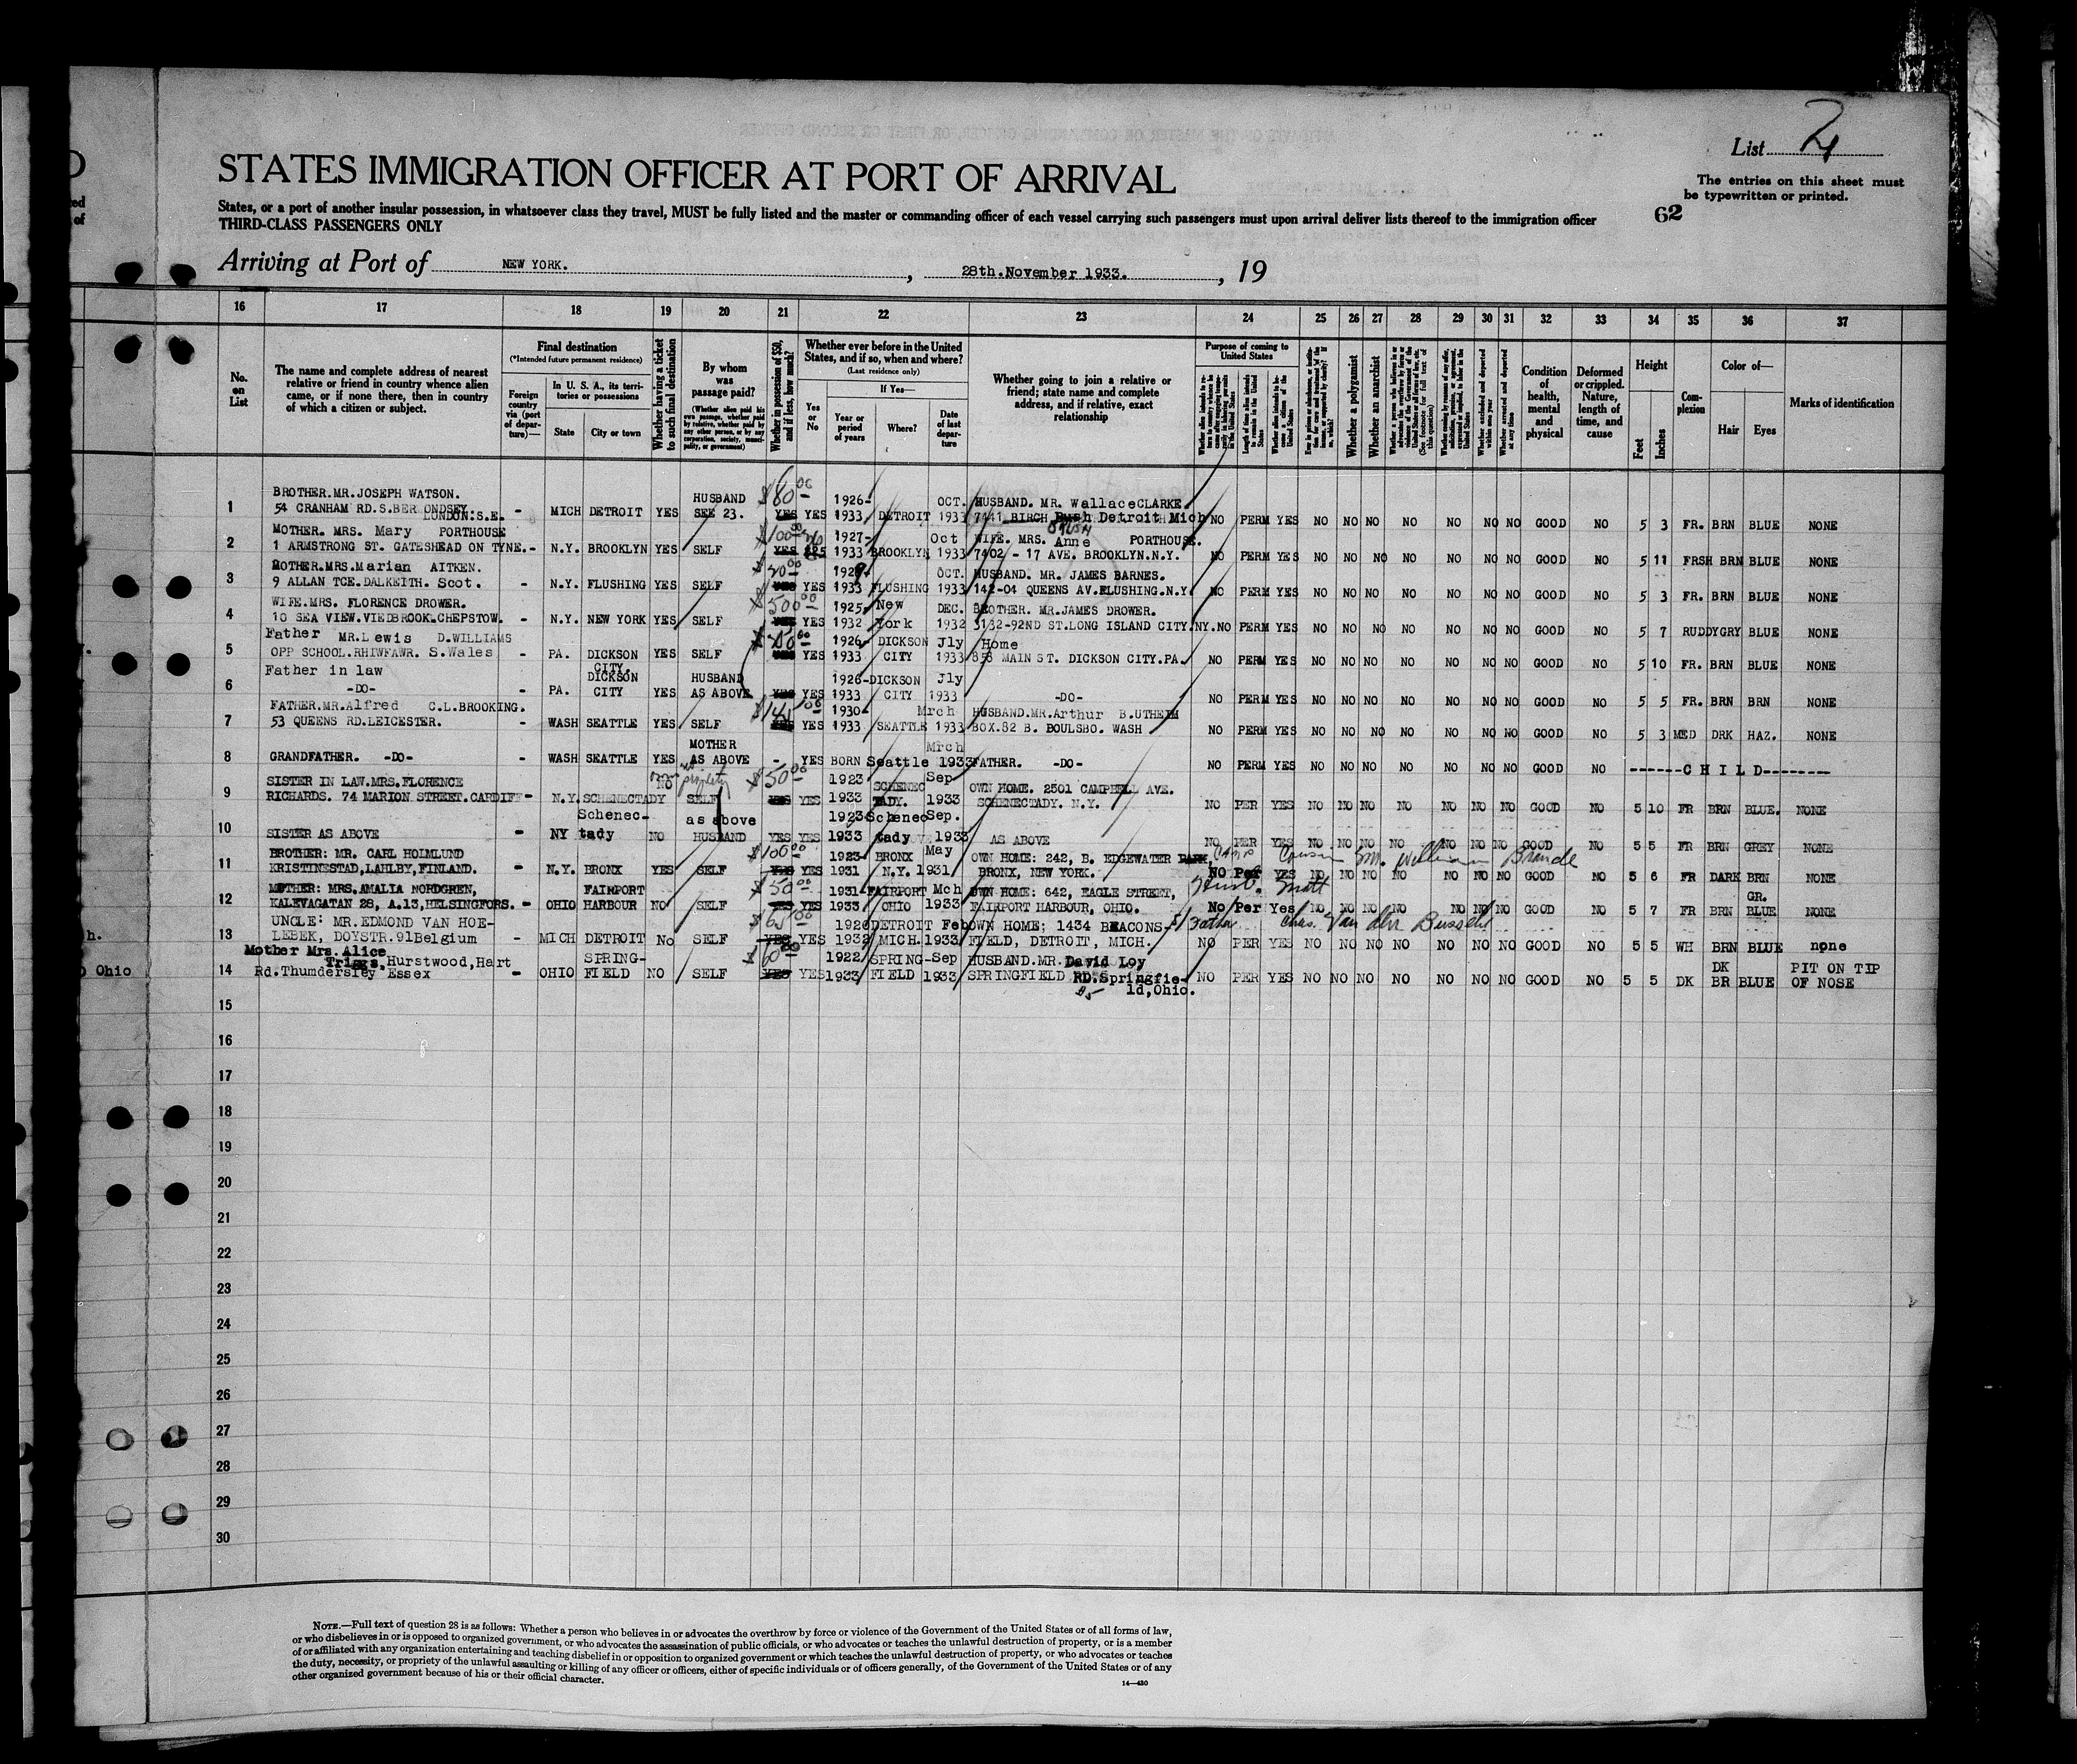 List 24
The entries on this sheet must
be typewritten or printed.
62
STATES IMMIGRATION OFFICER AT PORT OF ARRIVAL
States, or a port of another insular possession, in whatsoever class they travel, MUST be fully listed and the master or commanding officer of each vessel carrying such passengers must upon arrival deliver lists thereof to the immigration officer
THIRD-CLASS PASSENGERS ONLY
Arriving at Port of NEW YORK. , 28th.November 1933. , 19
16 17 18 19 20 21 22 23 24 25 26 27 28 29 30 31 32 33 34 35 36 37
No. on List
The name and complete address of nearest relative or friend in country whence alien came, or if none there, then in country of which a citizen or subject.
Final destination
(*Intended future permanent residence)
Foreign country via (port of departure)—
In U. S. A., its territories or possessions
State
City or town
Whether having a ticket to such final destination
By whom was passage paid?
(Whether alien paid his own passage, whether paid by relative, whether paid by any other person, or by any corporation, society, municipality, or government)
Whether in possession of $50, and if less, how much?
Whether ever before in the United States, and if so, when and where?
(Last residence only)
Yes or No
If Yes—
Year or period of years
Where?
Date of last departure
Whether going to join a relative or friend; state name and complete address, and if relative, exact relationship
Purpose of coming to United States
Whether a polygamist
Whether an anarchist
Condition of health, mental and physical
Deformed or crippled. Nature, length of time, and cause
Height
Feet
Inches
Complexion
Color of—
Hair
Eyes
Marks of identification
BROTHER.MR.JOSEPH WATSON. HUSBAND $80 00 1926- OCT. HUSBAND. MR. WallaceCLARKE.
1 54 CRANHAM RD.S.BERMONDSEY LONDON:S.E. - MICH DETROIT YES SEE 23. YES YES 1933 DETROIT 1933 7441 BIRCH Detroit Mich NO PERM YES NO NO NO NO NO NO NO GOOD NO 5 3 FR. BRN BLUE NONE
MOTHER. MRS. Mary PORTHOUSE $100 00 1927- Oct WIFE. MRS. Anne PORTHOUSE.
2 1 ARMSTRONG ST. GATESHEAD ON TYNE.- N.Y. BROOKLYN YES SELF YES YES 1933 BROOKLYN 1933 7402 - 17 AVE. BROOKLYN.N.Y. NO PERM YES NO NO NO NO NO NO NO GOOD NO 5 11 FRSH BRN BLUE NONE
MOTHER.MRS.Marian AITKEN. OCT. HUSBAND. MR. JAMES BARNES.
3 9 ALLAN TCE.DALKEITH. Scot. - N.Y. FLUSHING YES SELF YES YES 1933 FLUSHING 1933 142-04 QUEENS AV.FLUSHING.N.Y. NO PERM YES NO NO NO NO NO NO NO GOOD NO 5 3 FR. BRN BLUE NONE
WIFE.MRS. FLORENCE DROWER. $500 00 1925- New DEC. BROTHER. MR.JAMES DROWER.
4 10 SEA VIEW.VIEDBROOK.CHEPSTOW. - N.Y. NEW YORK YES SELF YES YES 1932 York 1932 3132-92ND ST.LONG ISLAND CITY.NY. NO PERM YES NO NO NO NO NO NO NO GOOD NO 5 7 RUDDY GRY BLUE NONE
Father MR.Lewis D.WILLIAMS 1926- DICKSON Jly Home
5 OPP SCHOOL.RHIWFAWR. S.Wales - PA. DICKSON CITY. YES SELF YES YES 1933 CITY 1933 858 MAIN ST. DICKSON CITY.PA. NO PERM YES NO NO NO NO NO NO NO GOOD NO 5 10 FR. BRN BLUE NONE
Father in law DICKSON HUSBAND 1926- DICKSON Jly
6 -DO- - PA. CITY YES AS ABOVE YES YES 1933 CITY 1933 -DO- NO PERM YES NO NO NO NO NO NO NO GOOD NO 5 5 FR. BRN BRN NONE
FATHER.MR.Alfred C.L.BROOKING. 1930- Mrch HUSBAND.MR.Arthur B.UTHEIM
7 53 QUEENS RD.LEICESTER. - WASH SEATTLE YES SELF YES YES 1933 SEATTLE 1933 BOX.82 B. BOULSBO. WASH NO PERM YES NO NO NO NO NO NO NO GOOD NO 5 3 MED DRK HAZ. NONE
MOTHER Mrch
8 GRANDFATHER. -DO- - WASH SEATTLE YES AS ABOVE - YES BORN Seattle 1933 FATHER. -DO- NO PERM YES NO NO NO NO NO NO NO GOOD NO ------C H I L D-------
SISTER IN LAW.MRS.FLORENCE NO $50 00 1923 SCHENEC Sep OWN HOME. 2501 CAMPBELL AVE.
9 RICHARDS. 74 MARION STREET.CARDIFF- N.Y. SCHENECTADY SELF YES YES 1933 TADY. 1933 SCHENECTADY. N.Y. NO PER YES NO NO NO NO NO NO NO GOOD NO 5 10 FR BRN BLUE. NONE
Schenec- as above 1923- Schenec Sep.
10 SISTER AS ABOVE - NY tady NO HUSBAND YES YES 1933 tady 1933 AS ABOVE NO PER YES NO NO NO NO NO NO NO GOOD NO 5 5 FR BRN GREY NONE
BROTHER: MR. CARL HOLMLUND $100 00 1923- BRONX May OWN HOME: 242, B. EDGEWATER PARK, Cousin Mr. William Brande
11 KRISTINESTAD,LAHLBY,FINLAND. - N.Y. BRONX YES SELF YES YES 1931 N.Y. 1931 BRONX, NEW YORK. NO Per YES NO NO NO NO NO NO NO GOOD NO 5 6 FR DARK BRN NONE
MOTHER: MRS.AMALIA NORDGREN, FAIRPORT $50 00 1931- FAIRPORT Mch OWN HOME: 642, EAGLE STREET, Husb. Matt GR.
12 KALEVAGATAN 28, A.13,HELSINGFORS. - OHIO HARBOUR NO SELF YES YES 1933 OHIO 1933 FAIRPORT HARBOUR, OHIO. No Per Yes NO NO NO NO NO NO NO GOOD NO 5 7 FR BRN BLUE NONE
UNCLE: MR.EDMOND VAN HOE- $65 00 1920 DETROIT Feb OWN HOME; 1434 BEACONS- Father Chas. Van den Bussche
13 LEBEK, DOYSTR.91Belgium - MICH DETROIT No SELF YES YES 1932 MICH. 1933 FIELD, DETROIT, MICH. NO PER YES NO NO NO NO NO NO NO GOOD NO 5 5 WH BRN BLUE none
h.
Mother Mrs.Alice Triggs,Hurstwood,Hart SPRING- $60 00 1922 SPRING- Sep HUSBAND.MR.David Loy DK PIT ON TIP
Ohio
14 Rd.Thundersley Essex - OHIO FIELD NO SELF YES YES 1933 FIELD 1933 SPRINGFIELD RD.Springfie- NO PER YES NO NO NO NO NO NO NO GOOD NO 5 5 DK BR BLUE OF NOSE
ld,Ohio.
15
16
17
18
19
20
21
22
23
24
25
26
27
28
29
30
NOTE.—Full text of question 28 is as follows: Whether a person who believes in or advocates the overthrow by force or violence of the Government of the United States or of all forms of law,
or who disbelieves in or is opposed to organized government, or who advocates the assassination of public officials, or who advocates or teaches the unlawful destruction of property, or is a member
of or affiliated with any organization entertaining and teaching disbelief in or opposition to organized government or which teaches the unlawful destruction of property, or who advocates or teaches
the duty, necessity, or propriety of the unlawful assaulting or killing of any officer or officers, either of specific individuals or of officers generally, of the Government of the United States or of any
other organized government because of his or their official character.
14—430